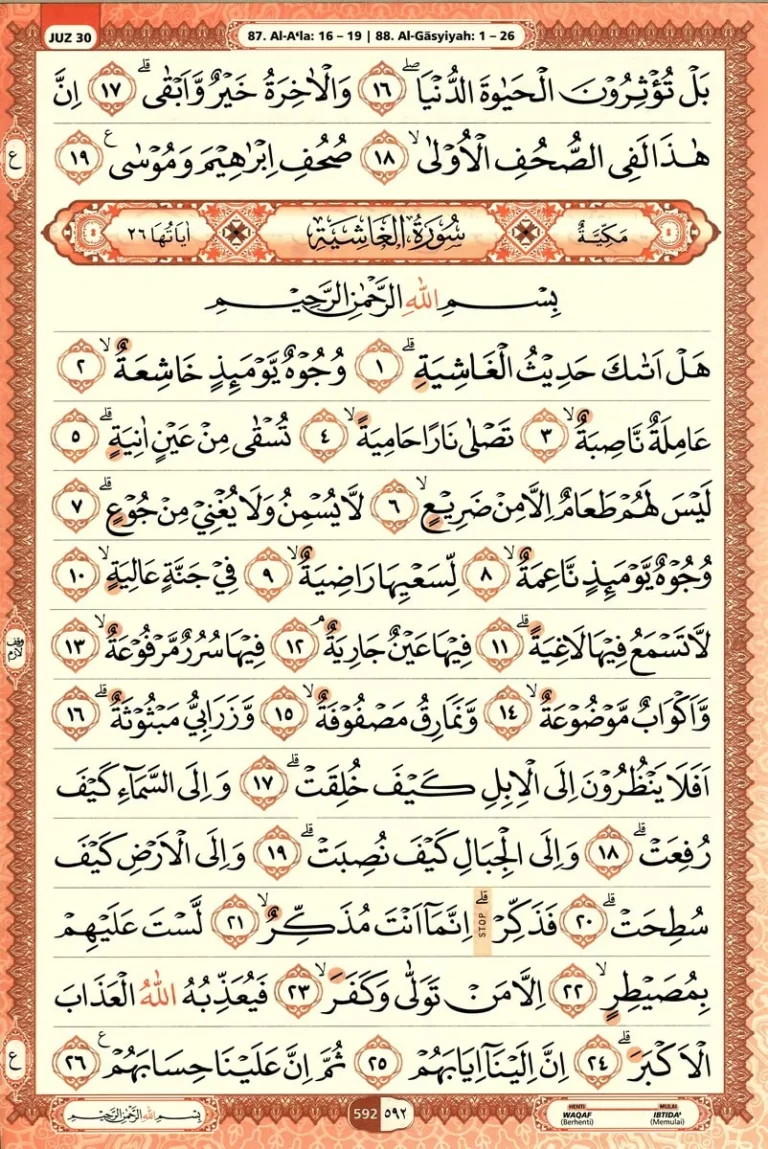 JUZ 30
87. Al-A‘la: 16 – 19 | 88. Al-Gāsyiyah: 1 – 26
بَلْ تُؤْثِرُوْنَ الْحَيٰوةَ الدُّنْيَاۖ ١٦ وَالْاٰخِرَةُ خَيْرٌ وَّاَبْقٰىۗ ١٧ اِنَّ
هٰذَا لَفِى الصُّحُفِ الْاُوْلٰىۙ ١٨ صُحُفِ اِبْرٰهِيْمَ وَمُوْسٰىࣖ ١٩
ع
مَكِّيَّةٌ سُوْرَةُ الْغَاشِيَةِ اٰيَاتُهَا ٢٦
بِسْمِ اللّٰهِ الرَّحْمٰنِ الرَّحِيْمِ
هَلْ اَتٰىكَ حَدِيْثُ الْغَاشِيَةِۗ ١ وُجُوْهٌ يَّوْمَىِٕذٍ خَاشِعَةٌۙ ٢
عَامِلَةٌ نَّاصِبَةٌۙ ٣ تَصْلٰى نَارًا حَامِيَةًۙ ٤ تُسْقٰى مِنْ عَيْنٍ اٰنِيَةٍۗ ٥
لَيْسَ لَهُمْ طَعَامٌ اِلَّا مِنْ ضَرِيْعٍۙ ٦ لَّا يُسْمِنُ وَلَا يُغْنِيْ مِنْ جُوْعٍۗ ٧
وُجُوْهٌ يَّوْمَىِٕذٍ نَّاعِمَةٌۙ ٨ لِّسَعْيِهَا رَاضِيَةٌۙ ٩ فِيْ جَنَّةٍ عَالِيَةٍۙ ١٠
لَّا تَسْمَعُ فِيْهَا لَاغِيَةًۗ ١١ فِيْهَا عَيْنٌ جَارِيَةٌۘ ١٢ فِيْهَا سُرُرٌ مَّرْفُوْعَةٌۙ ١٣
وقف لازم
وَّاَكْوَابٌ مَّوْضُوْعَةٌۙ ١٤ وَّنَمَارِقُ مَصْفُوْفَةٌۙ ١٥ وَّزَرَابِيُّ مَبْثُوْثَةٌۗ ١٦
اَفَلَا يَنْظُرُوْنَ اِلَى الْاِبِلِ كَيْفَ خُلِقَتْۗ ١٧ وَاِلَى السَّمَاۤءِ كَيْفَ
رُفِعَتْۗ ١٨ وَاِلَى الْجِبَالِ كَيْفَ نُصِبَتْۗ ١٩ وَاِلَى الْاَرْضِ كَيْفَ
سُطِحَتْۗ ٢٠ فَذَكِّرْۗ STOP اِنَّمَآ اَنْتَ مُذَكِّرٌۙ ٢١ لَّسْتَ عَلَيْهِمْ
بِمُصَيْطِرٍۙ ٢٢ اِلَّا مَنْ تَوَلّٰى وَكَفَرَۙ ٢٣ فَيُعَذِّبُهُ اللّٰهُ الْعَذَابَ
الْاَكْبَرَۗ ٢٤ اِنَّ اِلَيْنَآ اِيَابَهُمْ ٢٥ ثُمَّ اِنَّ عَلَيْنَا حِسَابَهُمْࣖ ٢٦
ع
بِسْمِ اللّٰهِ الرَّحْمٰنِ الرَّحِيْمِ
592 ٥٩٢
HENTI MULAI
WAQAF IBTIDA’
(Berhenti) (Memulai)